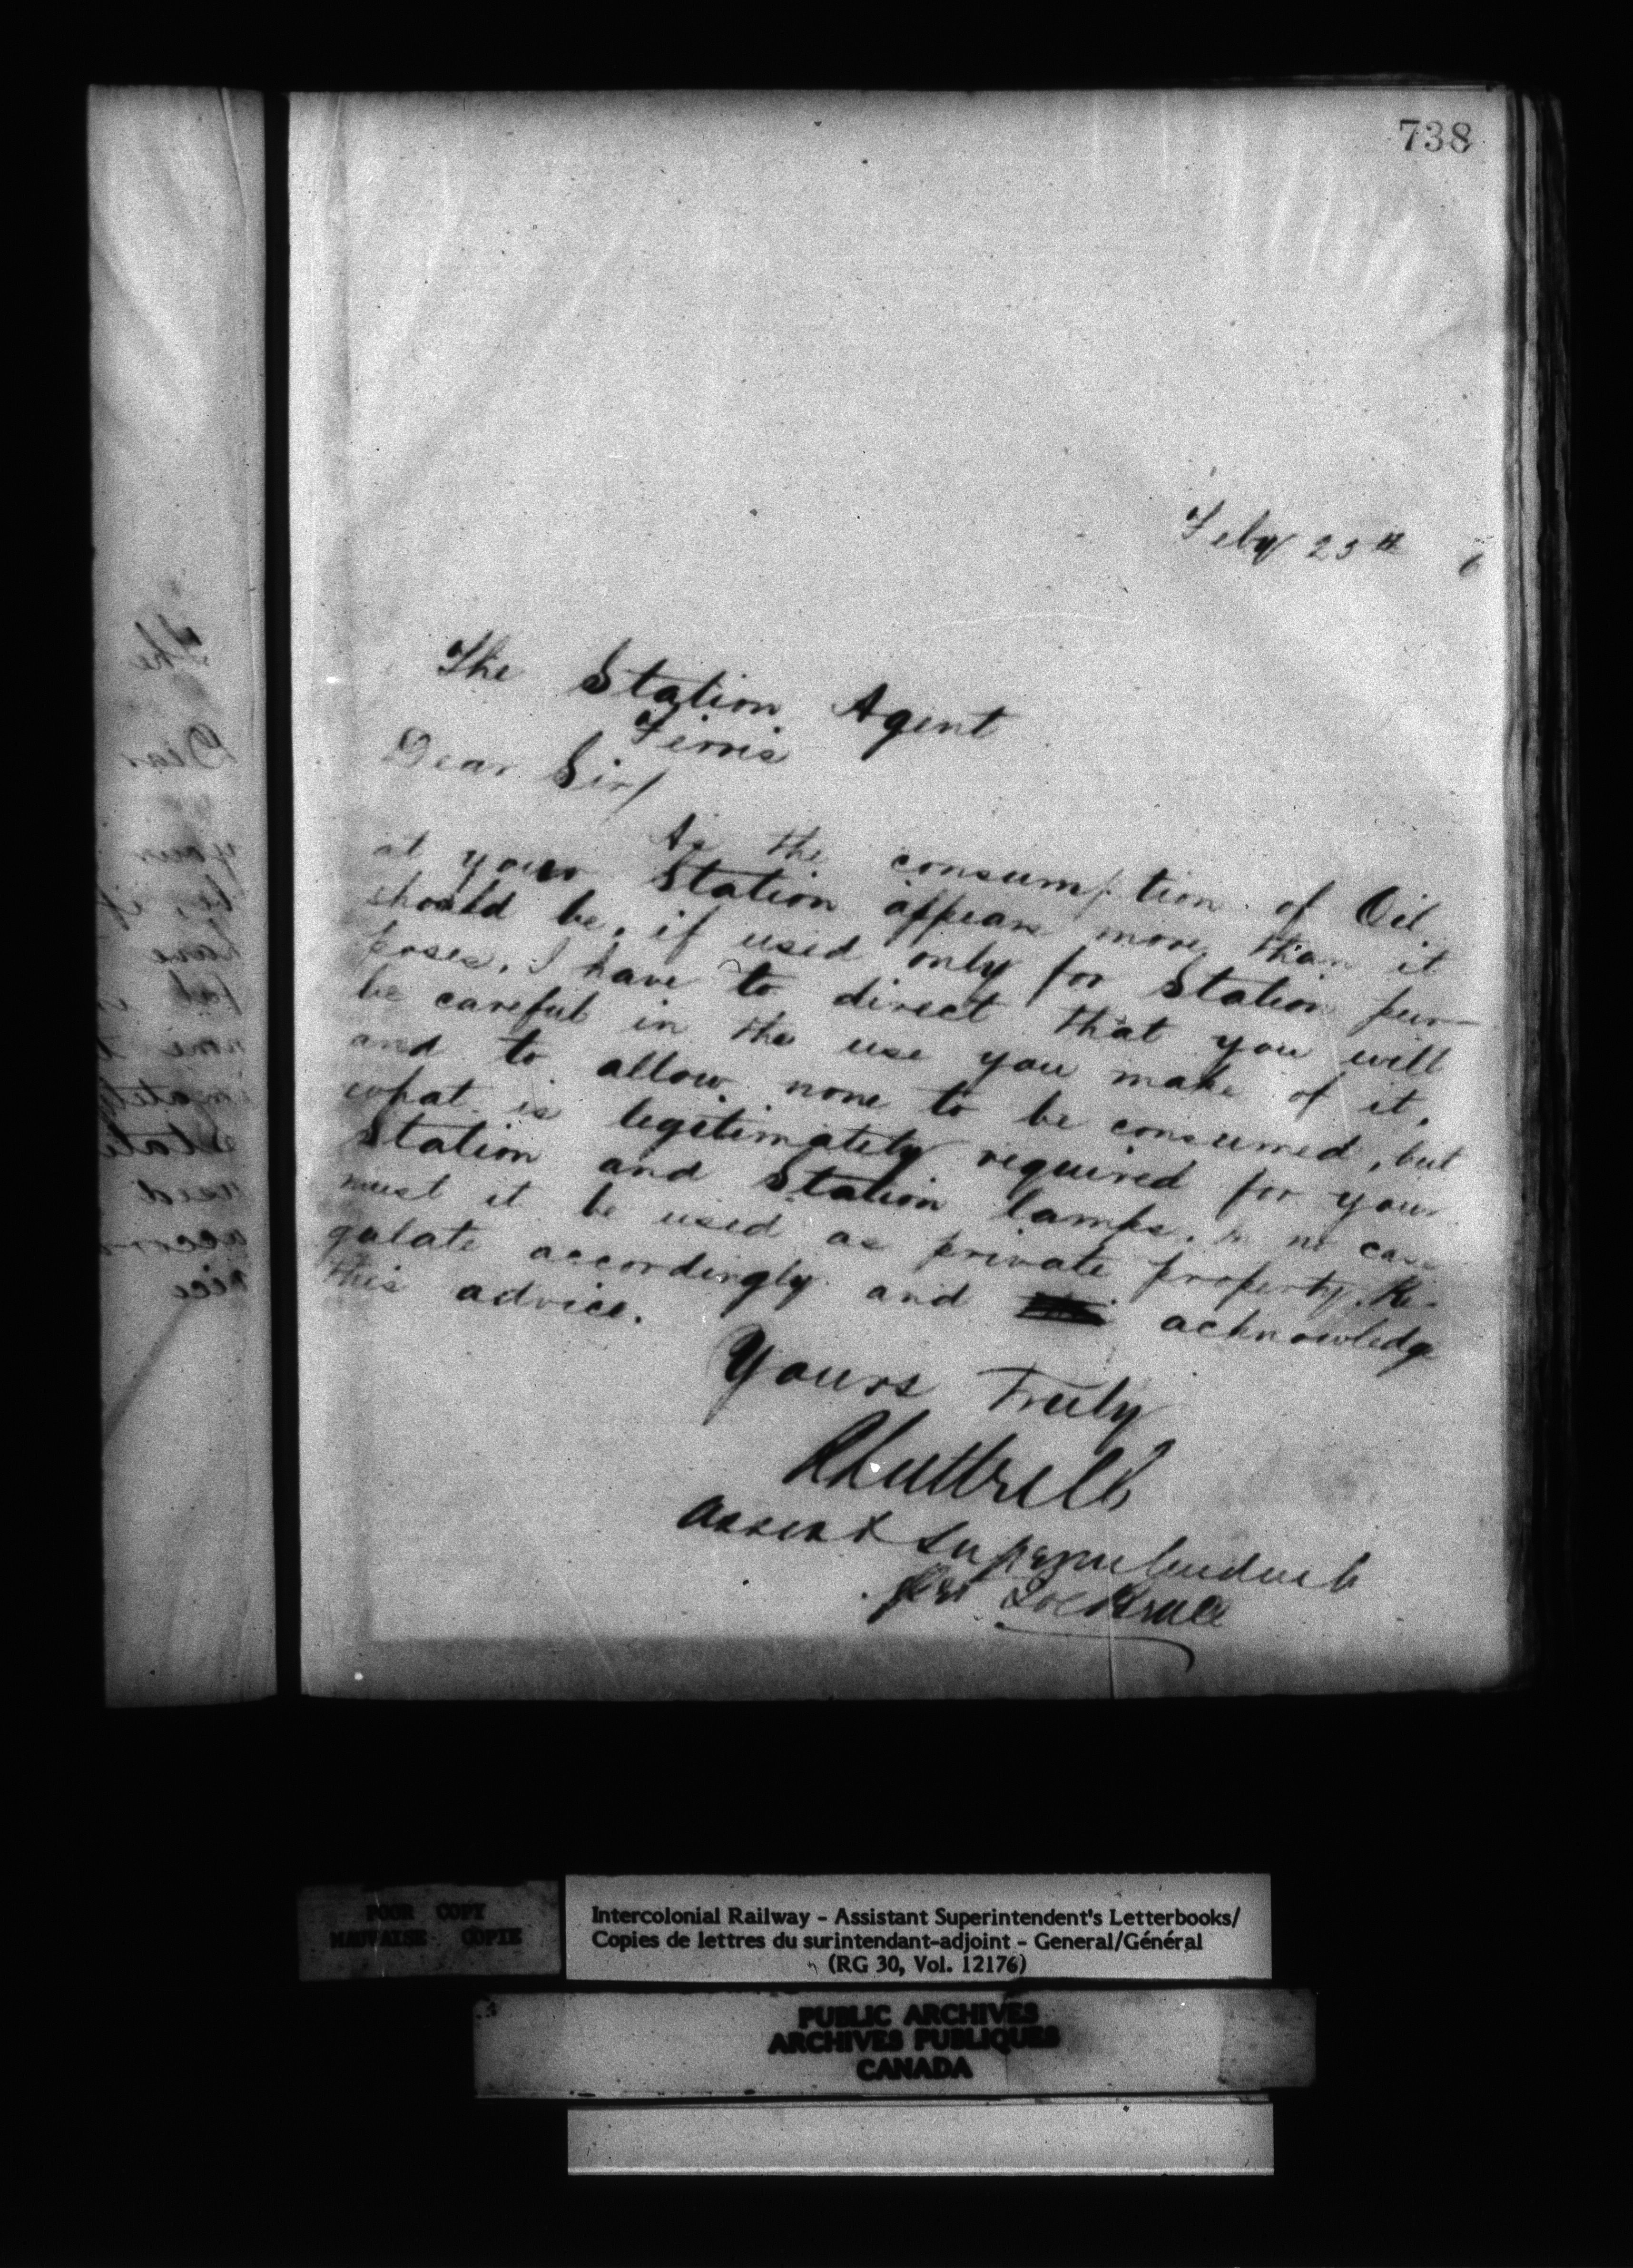 738
Feby 25th 6
The Station Agent
Ferris
Dear Sir/
As the consumption of Oil
at your Station appears more than it
should be, if used only for Station pur-
poses, I have to direct that you will
be careful in the use you make of it,
and to allow none to be consumed, but
what is legitimately required for your
Station and Station lamps. In no case
must it be used as private property. Re-
gulate accordingly and acknowledge
this advice.
Yours Truly
R Luttrell
Assist Superintendent
per
POOR COPY
MAUVAISE COPIE
Intercolonial Railway - Assistant Superintendent's Letterbooks/
Copies de lettres du surintendant-adjoint - General/Général
(RG 30, Vol. 12176)
PUBLIC ARCHIVES
ARCHIVES PUBLIQUES
CANADA